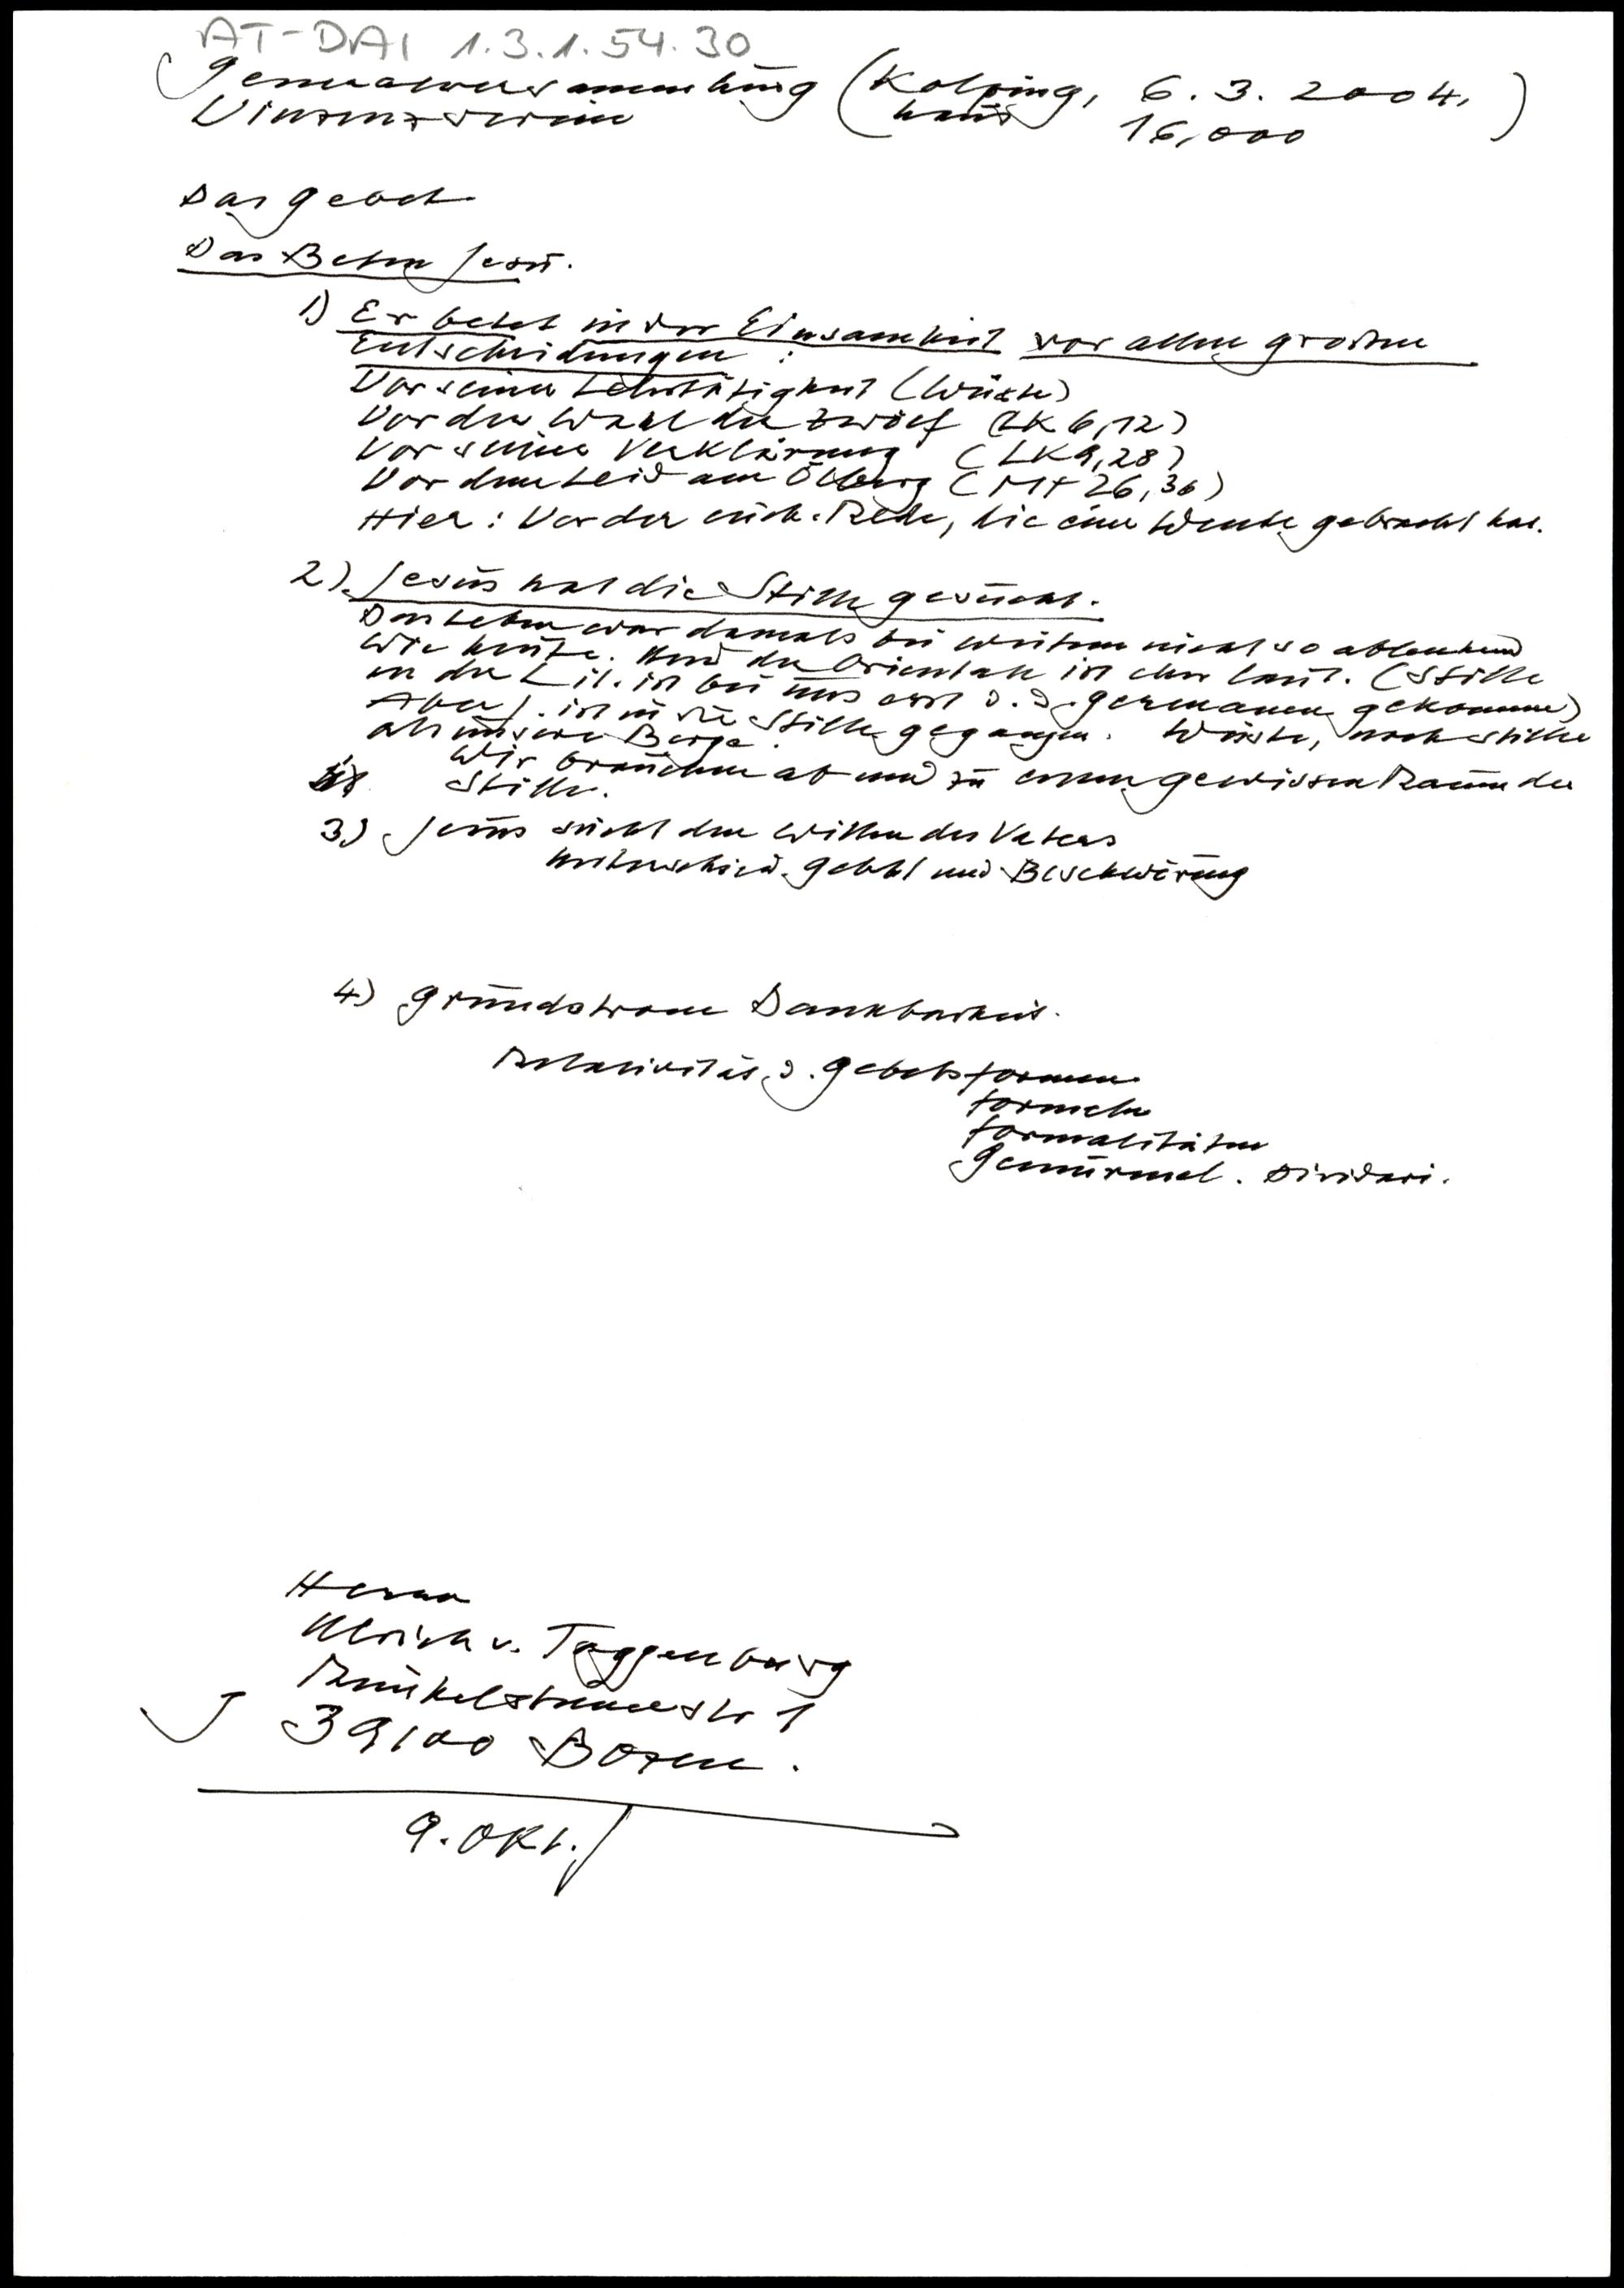 AT-DAI 1.3.1.54.30
Generalversammlung (Kolping, 6.3.2004,)
Vinzenzverein haus 16,000
Das Gebet
Das Beten Jesu.
1) Er betet in der Einsamkeit vor allen großen
Entscheidungen:
Vor seiner Lehrtätigkeit (Wüste)
Vor der Wahl der Zwölf (LK 6,12)
Vor seiner Verklärung (LK 9,28)
Vor dem Leid am Ölberg (Mt 26,36)
Hier: Vor der euch. Rede, die eine Wende gebracht hat.
2) Jesus hat die Stille gesucht.
Das Leben war damals bei weitem nicht so ablenkend
wie heute. Und der Orientale ist eher laut. (Stille
in der Lit. ist bei uns erst d. d. Germanen gekommen)
Aber J. ist in die Stille gegangen. Wüste, noch stiller
als unsere Berge.
Wir brauchen ab und zu einen gewissen Raum der
Stille.
3) Jesus sucht den Willen des Vaters
Unterschied. Gebet und Beschwörung
4) Grundstrom Dankbarkeit.
Relativität d. Gebetsformen
formeln
formalitäten
Gemurmel. Dividori.
Herrn
Ulrich v. Toggenburg
Runkelsteinerstr 1
39100 Bozen.
9. Okt.